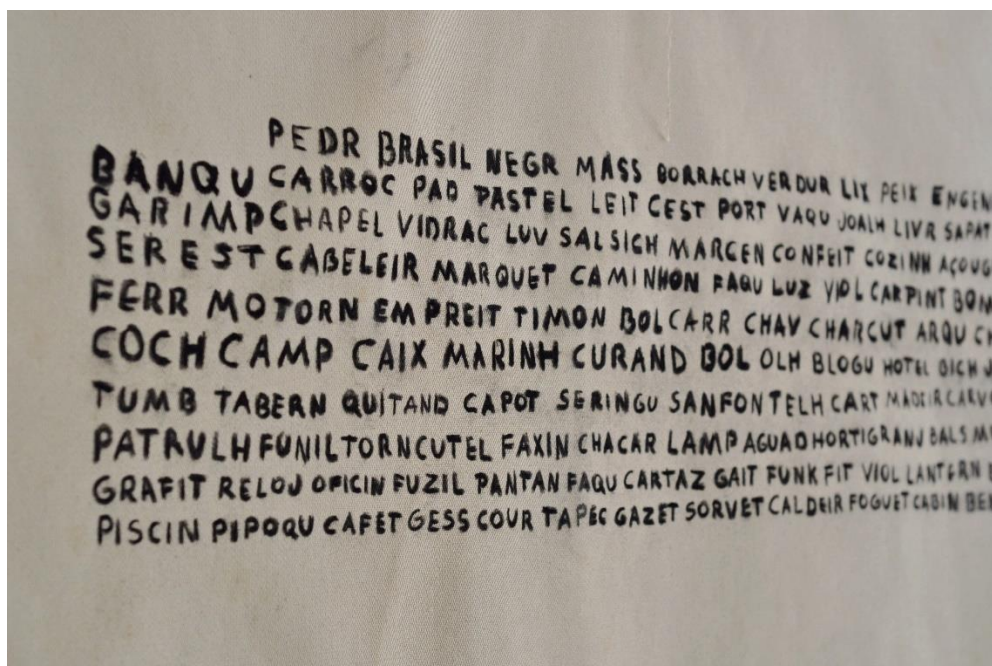 PEDR BRASIL NEGR MASS BORRACH VERDUR LIX PEIX
BANQU CARROC PAD PASTEL LEIT CEST PORT VAQU JOALH LIVR SAPAT
GARIMP CHAPEL VIDRAC LUV SALSICH MARCEN CONFEIT COZINH AÇOUG
SEREST CABELEIR MARQUET CAMINHON FAQU LUZ VIOL CARPINT
FERR MOTORN EMPREIT TIMON BOL CARR CHAV CHARCUT ARQU
COCH CAMP CAIX MARINH CURAND BOL OLH BLOGU HOTEL BICH
TUMB TABERN QUITAND CAPOT SERINGU SANFON TELH CART MADEIR CARV
PATRULH FUNIL TORN CUTEL FAXIN CHACAR LAMP AGUAD HORTIGRANJ BALS
GRAFIT RELOJ OFICIN FUZIL PANTAN FAQU CARTAZ GAIT FUNK FIT VIOL LANTERN
PISCIN PIPOQU CAFET GESS COUR TAPEC GAZET SORVET CALDEIR FOGUET CABIN